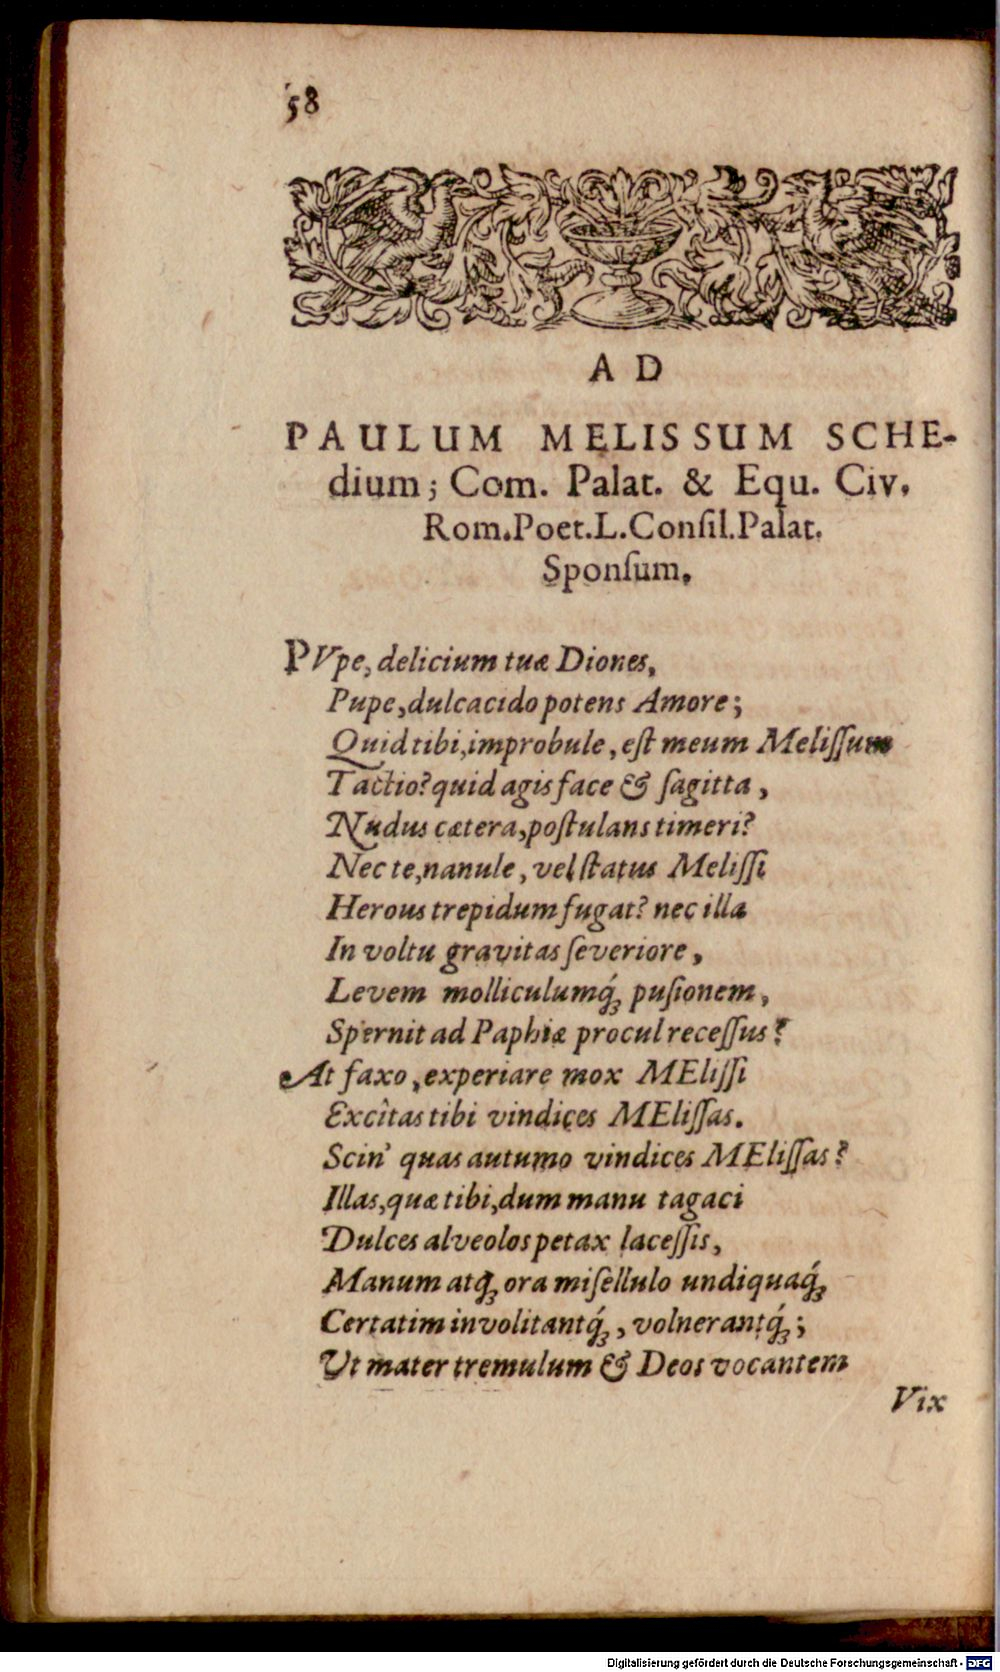 58
AD
PAULUM MELISSUM SCHE-
dium; Com. Palat. & Equ. Civ.
Rom.Poet.L.Conſil.Palat.
Sponſum.
PVpe, delicium tuæ Diones,
Pupe, dulcacido potens Amore;
Quid tibi, improbule, eſt meum Meliſſum
Tactio? quid agis face & ſagitta,
Nudus cætera, poſtulans timeri?
Nec te, nanule, vel ſtatus Meliſſi
Herous trepidum fugat? nec illa
In voltu gravitas ſeveriore,
Levem molliculumq́; puſionem,
Spernit ad Paphiæ procul receſſus?
At faxo, experiare mox MEliſſi
Excîtas tibi vindices MEliſſas.
Scin' quas autumo vindices MEliſſas?
Illas, quæ tibi, dum manu tagaci
Dulces alveolos petax laceſſis,
Manum atq; ora miſellulo undiquaq́;
Certatim involitantq́;, volnerantq́;;
Ut mater tremulum & Deos vocantem
Vix
Digitalisierung gefördert durch die Deutsche Forschungsgemeinschaft - DFG